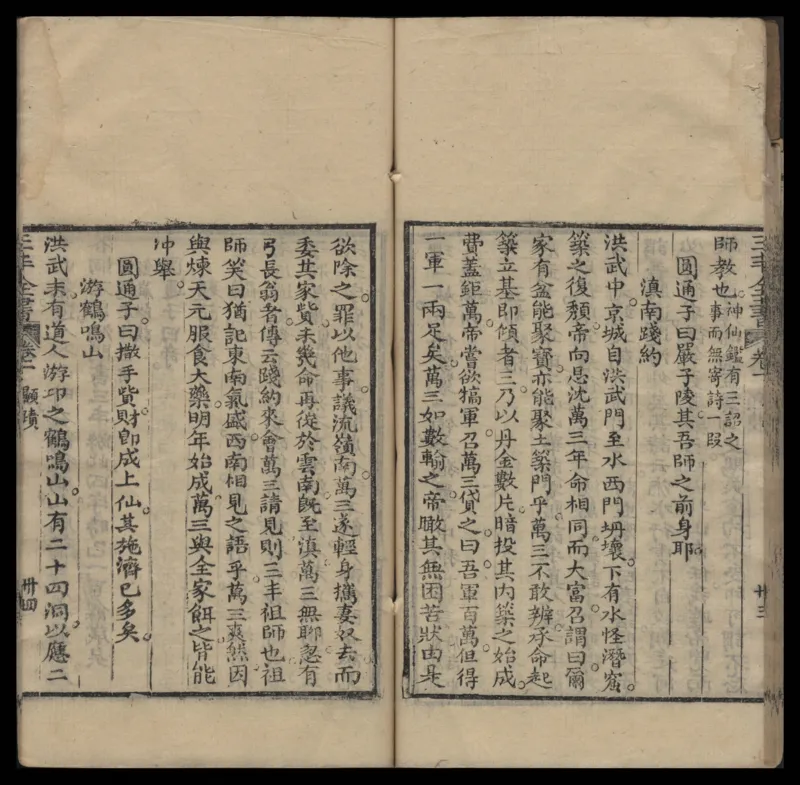 三丰全書 卷一 卅三
師教也 神仙鑑有三詔之
事而無寄詩一段
圓通子曰嚴子陵其吾師之前身耶
滇南踐約
洪武中京城自洪武門至水西門坍壞下有水怪潛窟
築之復頹帝向忌沈萬三年命相同而大富召謂曰爾
家有盆能聚寶亦能聚土築門乎萬三不敢辨承命起
築立基即傾者三乃以丹金數片暗投其内築之始成
費蓋鉅萬帝嘗欲犒軍召萬三貸之曰吾軍百萬但得
一軍一兩足矣萬三如數輸之帝瞰其無困苦狀由是
欲除之罪以他事議流嶺南萬三遂輕身攜妻奴去而
委其家貲未幾命再從於雲南既至滇萬三無聊忽有
弓長翁者傳云踐約來會萬三請見則三丰祖師也祖
師笑曰猶記東南氣盛西南相見之語乎萬三爽然因
與煉天元服食大藥明年始成萬三與全家餌之皆能
冲舉
圓通子曰撒手貲財即成上仙其施濟已多矣
游鶴鳴山
洪武末有道人游卭之鶴鳴山山有二十四洞以應二
三丰全書 卷一 顯蹟 卅四